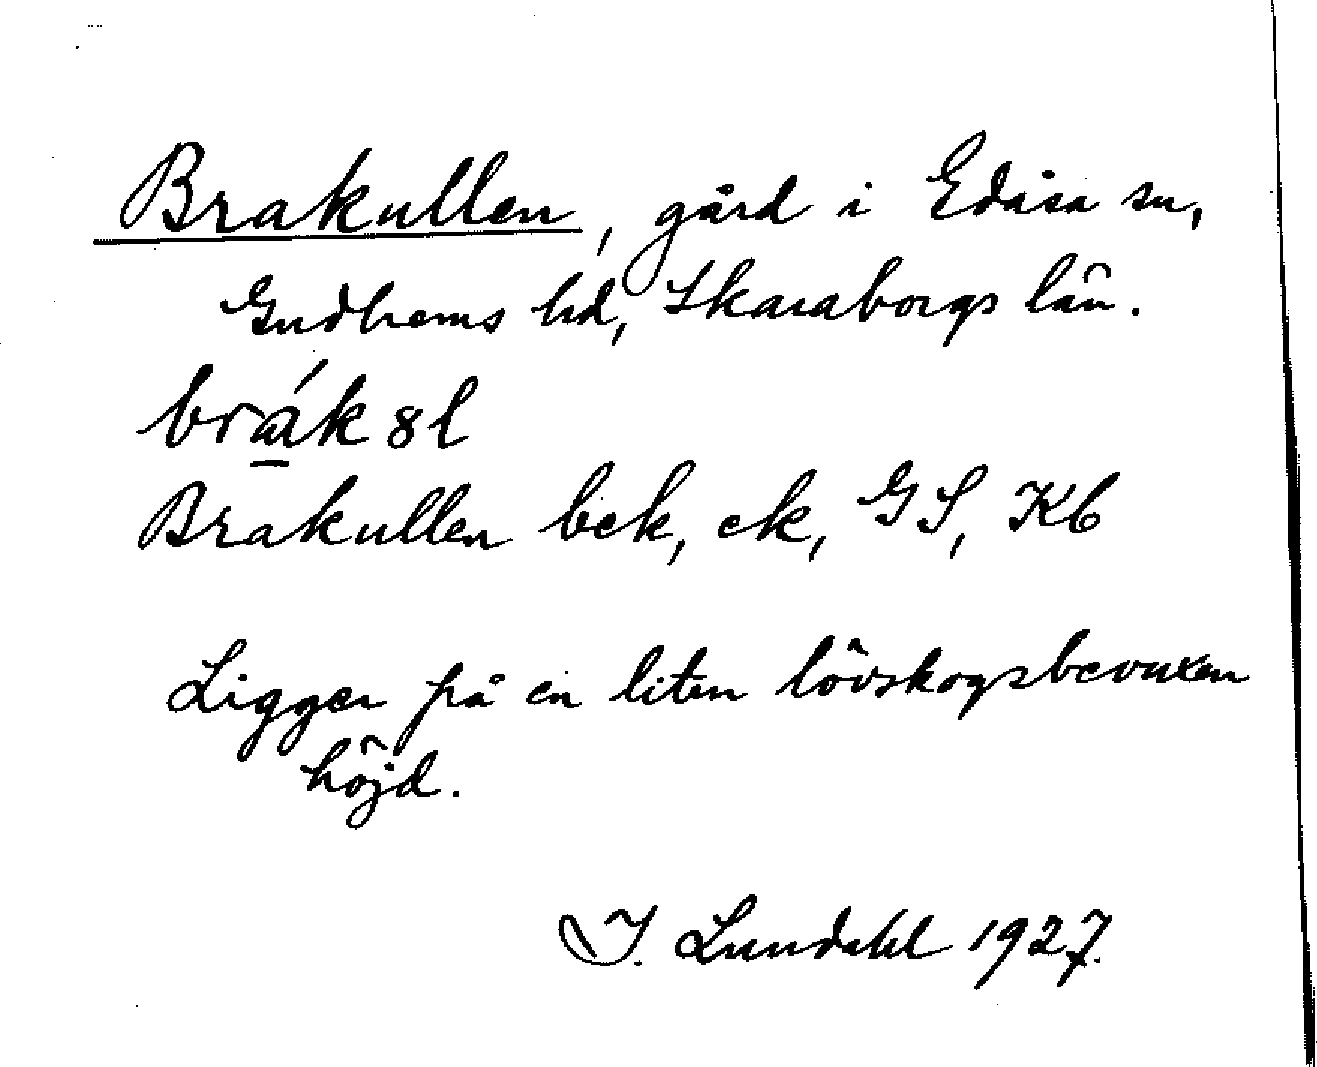 Brakullen, gård i Edåsa sn,
Gudhems hd, Skaraborgs län.
brák8l
Brakullen bek, ek, GS, Kb
Ligger på en liten lövskogsbevuxen
höjd.
I. Lundahl 1927.